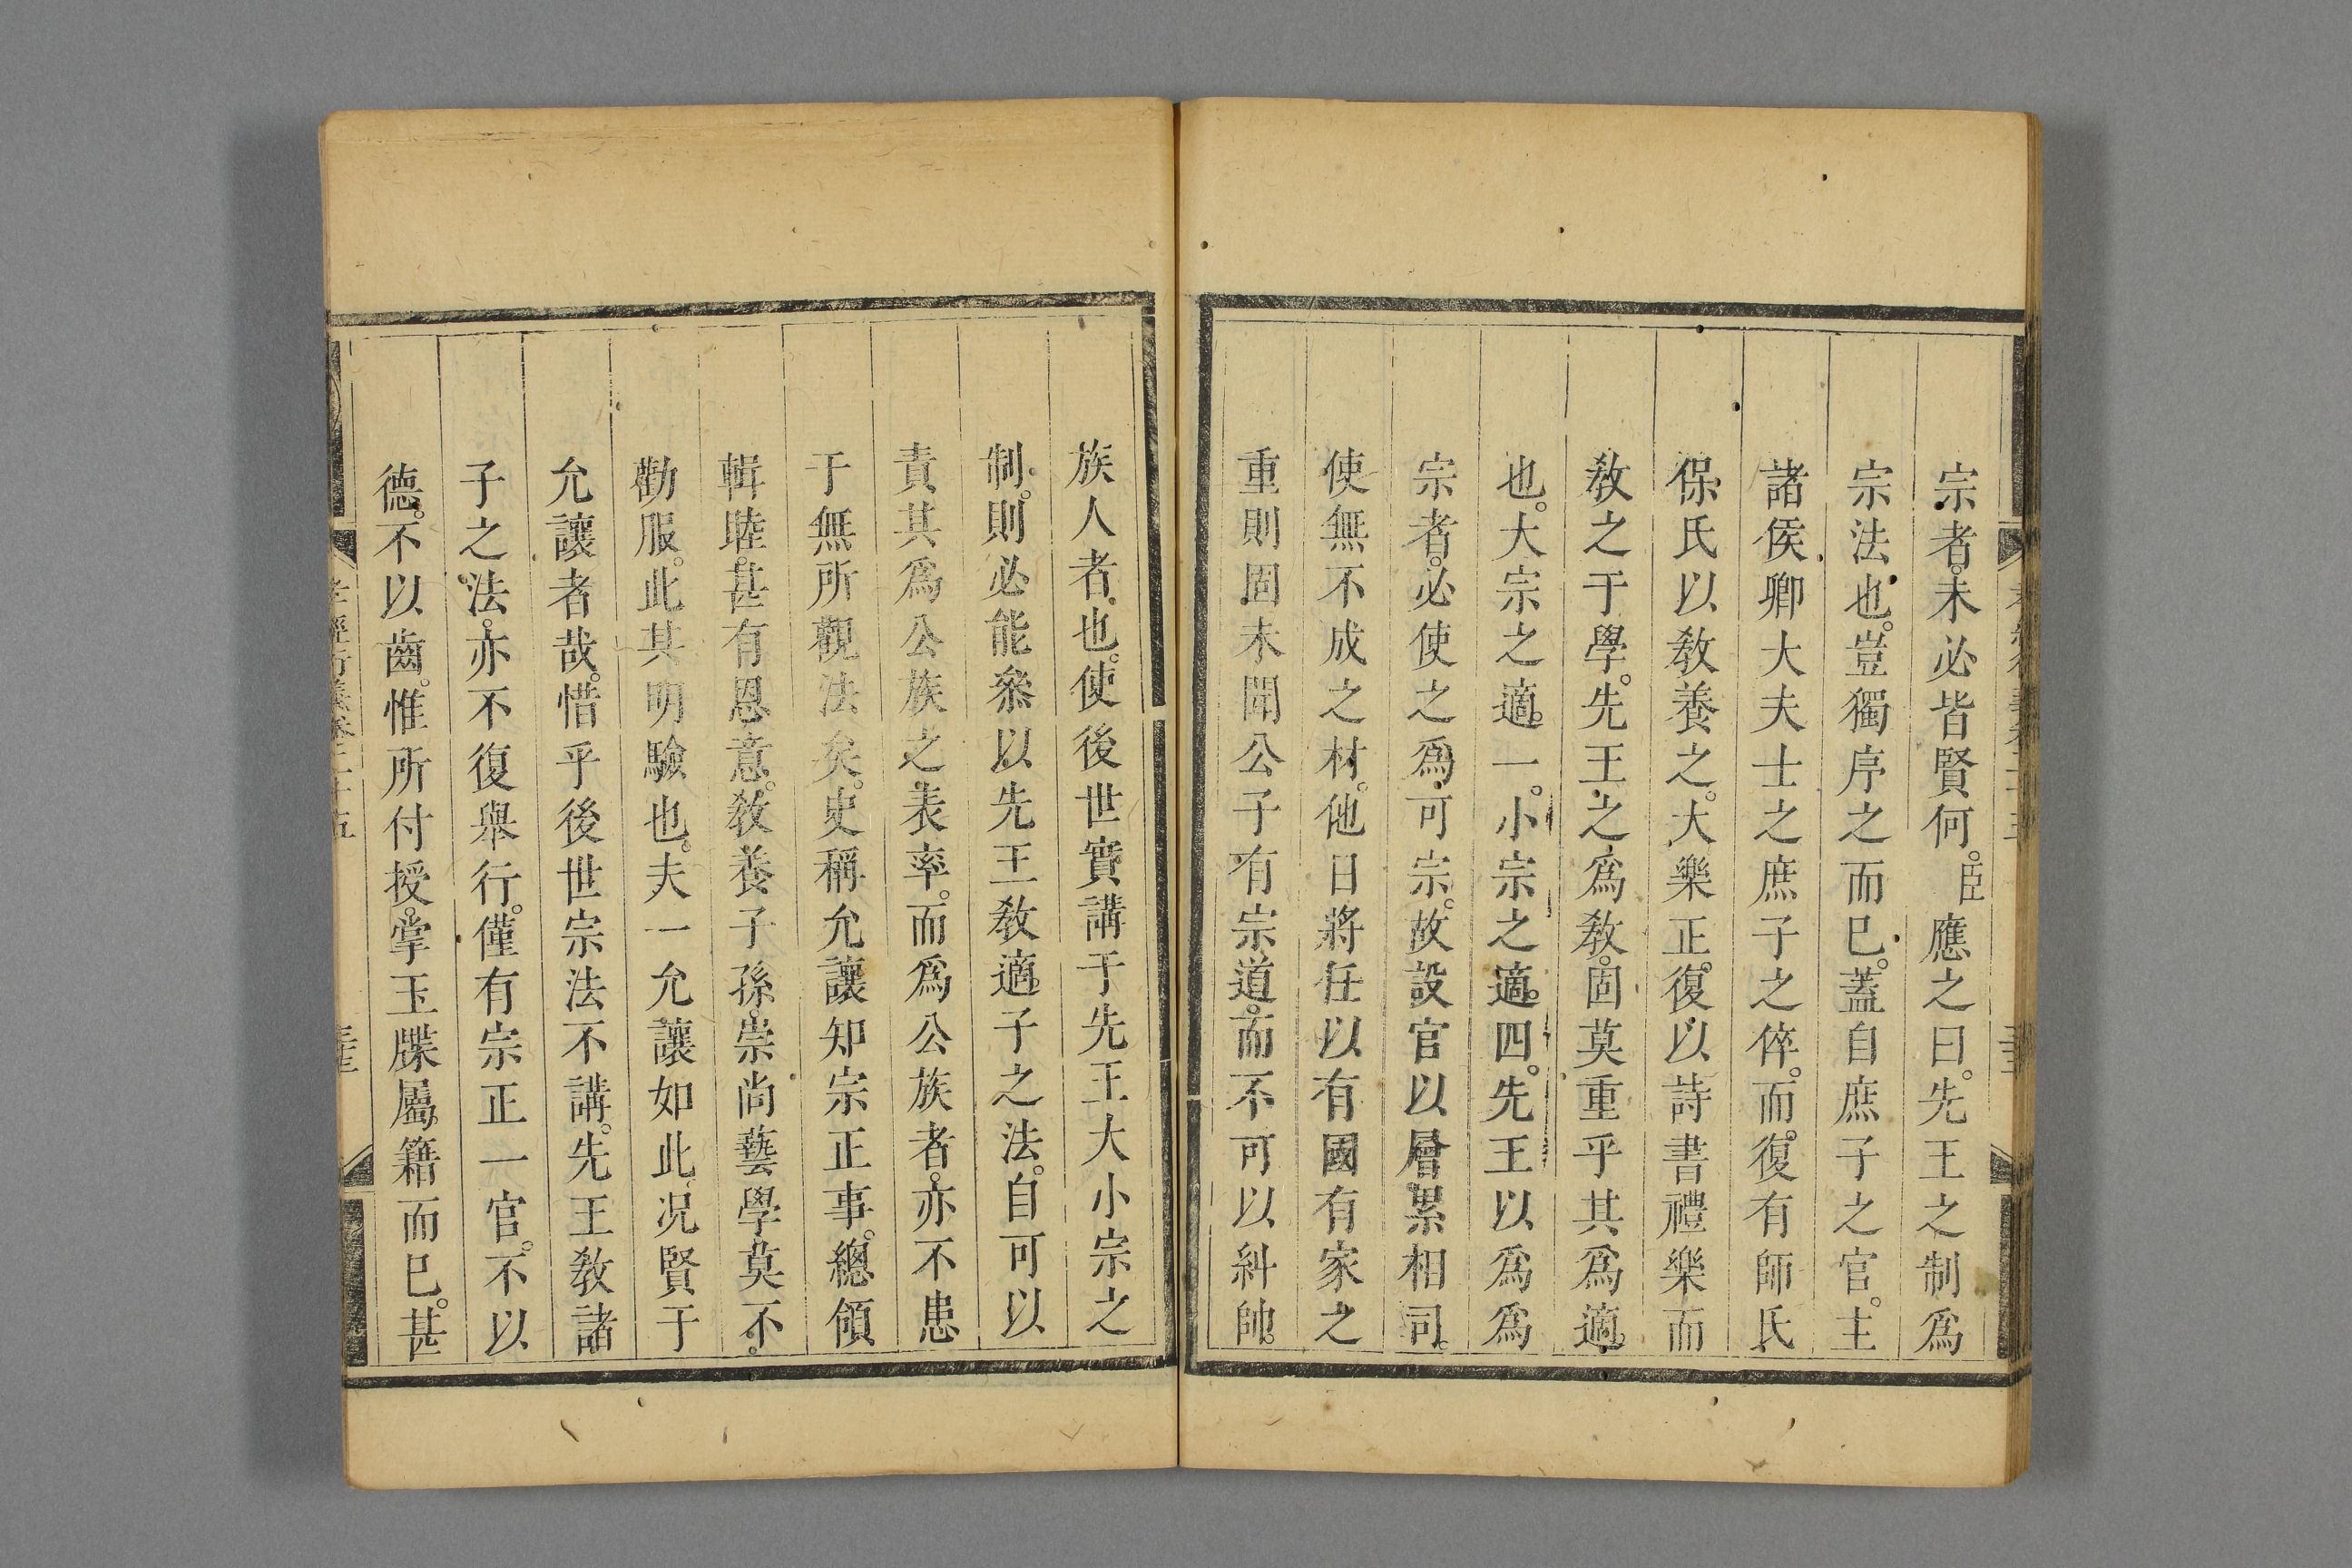 宗者。未必皆賢何。臣應之曰。先王之制爲
宗法也。豈獨序之而已。蓋自庶子之官。主
諸侯卿大夫士之庶子之倅。而復有師氏
保氏以敎養之。大樂正。復以詩書禮樂而
敎之于學。先王之爲敎。固莫重乎其爲適。
也。大宗之適。一。小宗之適。四。先王以爲爲
宗者。必使之爲可宗。故設官以層累相司。
使無不成之材。他日將任以有國有家之
重則固未聞公子有宗道。而不可以糾帥。
族人者也。使後世實講于先王大小宗之
制。則必能叅以先王敎適子之法。自可以
責其爲公族之表率。而爲公族者。亦不患
于無所觀法矣。史稱允讓知宗正事。總領
輯睦。甚有恩意。敎養子孫。崇尚藝學莫不。
勸服。此其明驗也。夫一允讓如此。况賢于
允讓者哉。惜乎後世宗法不講。先王敎諸
子之法。亦不復舉行。僅有宗正一官。不以
德。不以齒。惟所付授。掌玉牒屬籍而已。甚